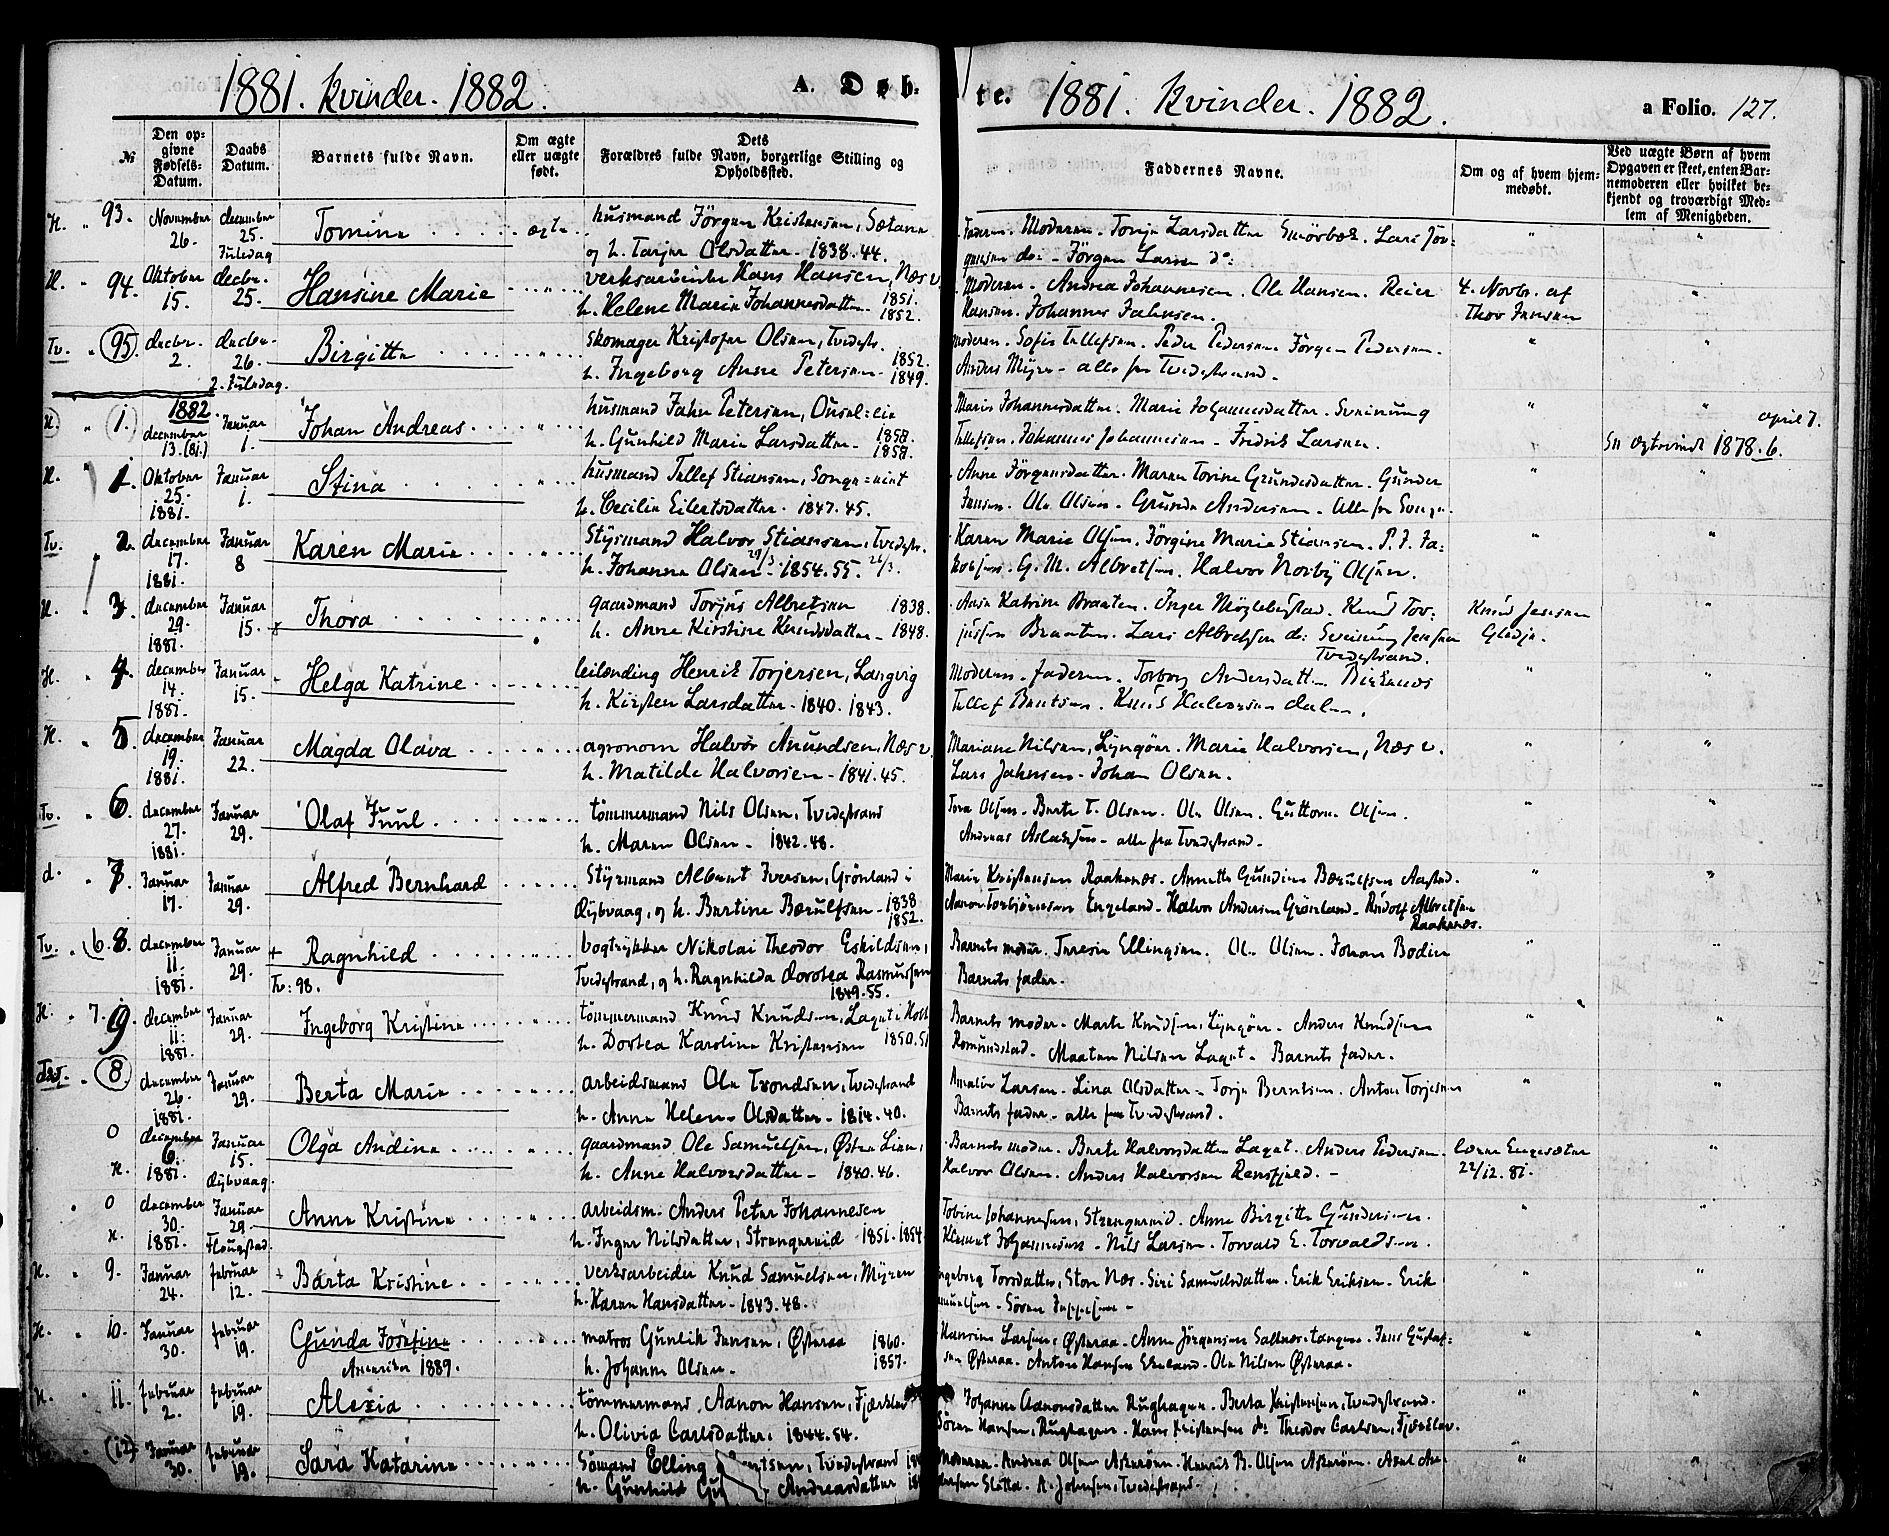 1881. Kvinder. 1882.
A. Døb-
te. 1881. Kvinder. 1882.
a Folio. 127.
№
Den op-
givne
Fødsels-
Datum.
Daabs
Datum.
Barnets fulde Navn.
Om ægte
eller uægte
født.
Dets
Forældres fulde Navn, borgerlige Stilling og
Opholdssted.
Faddernes Navne.
Om og af hvem hjem-
medøbt.
Ved uægte Børn af hvem
Opgaven er skeet, enten Bar-
nemoderen eller hvilket be-
kjendt og troværdigt Med-
lem af Menigheden.
H. " 93. November 26. december 25. Juledag Tomine ægte husmand Jörgen Kristensen, Sætane
og h. Tarjer Olsdatter - 1838.44.
Faderen. Moderen. Tonje Larsdatter Smörbek. Lars Jör-
gensen do: - Jörgen Larsen do:
H. " 94. Oktober 15. decbr. 25. Hansine Marie verksarbeider Hans Hansen, Næs v.
h. Helene Marie Johannesdatter - 1851. 1852.
Moderen - Andrea Johannesen. Ole Hansen. Reier
Hansen. Johannes Jahnsen.
4. Novbr. af
Thor Jensen
Tv. " 95. decbr. 2. decbr. 26. 2. Juledag. Birgitte Skomager Kristofer Olsen, Tvedestr.
h. Ingeborg Anne Petersen - 1852. 1849.
moderen. Sofie Tellefsen. Peder Pedersen. Jörgen Pedersen.
Anders Myre - alle fra Tvedestrand.
1882.
H. " 1. december 13. (81.) Januar 1. Johan Andreas husmand Jahn Petersen,
h. Gunhild Marie Larsdatter - 1858. 1858.
Maris Johannesdatter. Marie Johannesdatter. Sveinung
Tellefsen. Johannes Johannesen - Fredrik Larsen.
april 7.
1878. 6.
H. " 1. Oktober 25. 1881. Januar 1. Stina husmand Tellef Stiansen,
h. Cecilie Eilertsdatter - 1847.45.
Anne Jörgensdatter. Maren Torine Gundersdatter. Gunder
Jensen. Ole Olsen. Gunder Andersen. Alle fra
Tv. " 2. december 17. 1881. Januar 8 Karen Marie Styrmand Halvor Stiansen, Tvedestr.
h. Johanne Olsen - 29/3 1854.55. 26/3.
Karen Marie Olsen, Jörgine Marie Stiansen. P. J. Ja-
kobsen. G. M. Albretsen. Halvor Norby Olsen.
H. " 3. december 29. 1881. Januar 15. Thora gaardmand Torjus Albretsen 1838.
h. Anne Kirstine Knudsdatter - 1848.
Anne Katrine Braaten. Inger Möglebustad. Knud Tor-
jussen Braaten. Lars Albretsen do: Sveinung Jensen
Tvedestrand.
Knud Jensen
Gledje.
H. " 4. december 14. 1881. Januar 15. Helga Katrine leilending Henrik Torjersen, Langvig
h. Kirsten Larsdatter - 1840. 1843.
Moderen. faderen. Torborg Andersdatter Birkenes
Tellef Bentsen. Knud Halvorsen dalen.
H. " 5. december 19. 1881. Januar 22. Magda Olava agronom Halvor Anundsen, Næs v.
h. Matilde Halvorsen - 1841.45.
Mariane Nilsen, Lyngöer. Marie Halvorsen, Næs v.
Lars Jahnsen. Johan Olsen.
Tv. " 6. december 27. 1881. Januar 29. Olaf Juul tömmermand Nils Olsen, Tvedestrand
h. Maren Olsen - 1842.48.
Tora Olsen. Berte T. Olsen. Ole Olsen. Guttorm Olsen.
Andreas Aslaksen - alle fra Tvedestrand.
d. " 7. Januar 17. Januar 29. Alfred Bernhard Styrmand Albert Iversen, Grönland i
Dybvaag, og h. Bertine Bærulfsen - 1838 1852.
Marie Kristensen Raakenes. Annette Gundine Bærulfsen Aastad.
Aanon Torbjörnsen Engeland. Halvor Andersen Grönland. Rudolf Albretsen
Raakenes.
Tv. " 6. 8. december 11. 1881. Januar 29. Ragnhild bogtrykker Nikolai Theodor Eskildsen,
Tv: 98. Tvedestrand, og h. Ragnhilda Dorotea Rasmussen
1849.55.
Barnets moder. Terese Ellingsen. Ole Olsen. Johan Bodin
Barnets fader.
H. " 7. 9. december 11. 1881. Januar 29. Ingeborg Kristine tömmermand Knud Knudsen, Laget i Holt
h. Dortea Karoline Kristensen 1850.51
Barnets moder. Marte Knudsen, Lyngöer. Anders Knudsen
Romundstad. Maaten Nilsen Laget. Barnets fader.
" 8 december 26. 1881. Januar 29. Berta Marie arbeidsmand Ole Trondsen, Tvedestrand
h. Anne Helene Olsdatter - 1814.40.
Amalie Larsen. Lina Olsdatter. Torje Berntsen. Anton Torjesen
Barnets fader - alle fra Tvedestrand.
0 H. december 6. 1881. Januar 15. Dybvaag. Olga Andine gaardmand Ole Samuelsen, Østre Lien,
h. Anne Halvorsdatter - 1840.46.
Barnets moder. Berte Halvorsdatter Laget. Anders Pedersen.
Halvor Olsen. Anders Halvorsen Rensfjeld. -
22/12. 81.
0 H. december 30. 1881. Januar 29. Flougstad. Anne Kristine arbeidsm. Anders Peter Johannesen
h. Inger Nilsdatter, Strengereid 1851.1854.
Tobine Johannesen, Strengereid. Anne Birgitte Gundersen.
Klement Johannesen. Nils Larsen. Torvald E. Torvaldsen.
H. " 9. Januar 24. februar 12. Barta Kristine verksarbeider Knud Samuelsen, Myren
h. Karen Hansdatter - 1843.48.
Ingeborg Torsdatter, Store Næs. Siri Samuelsdatter. Erik Eriksen. Erik
Samuelsen. Sören Jeppesen -
H. " 10. Januar 30. februar 19. Gunda Josefine matros Gunlik Jensen, Østeraa 1860.
Amerika 1889. h. Johanne Olsen. 1857.
Hansine Larsen, Østeraa. Anne Jörgensen Saltnestangen. Jens Gustav-
sen Østeraa. Anton Hansen Ekeland. Ole Nilsen Østeraa.
H. " 11. februar 2. februar 19. Alexia tömmermand, Aanon Hansen, Fjærkleiv
h. Olivia Carlsdatter. 1844.54.
Johanne Aanonsdatter Rughagen. Berta Kristensen, Tvedestrand.
Sören Hansen, Rughagen. Hans Kristensen do: Theodor Carlsen, Fjærkleiv.
(12) Januar 30. februar 19. Sara Katarine Sömand Elling Tvedestrand
h. Gunhild Andreasdatter
Moderen. Andrea Olsen Askerön. Henrik B. Olsen Askerön. Axel An-
dersen Sletta. A. Johnsen, Tvedestrand.